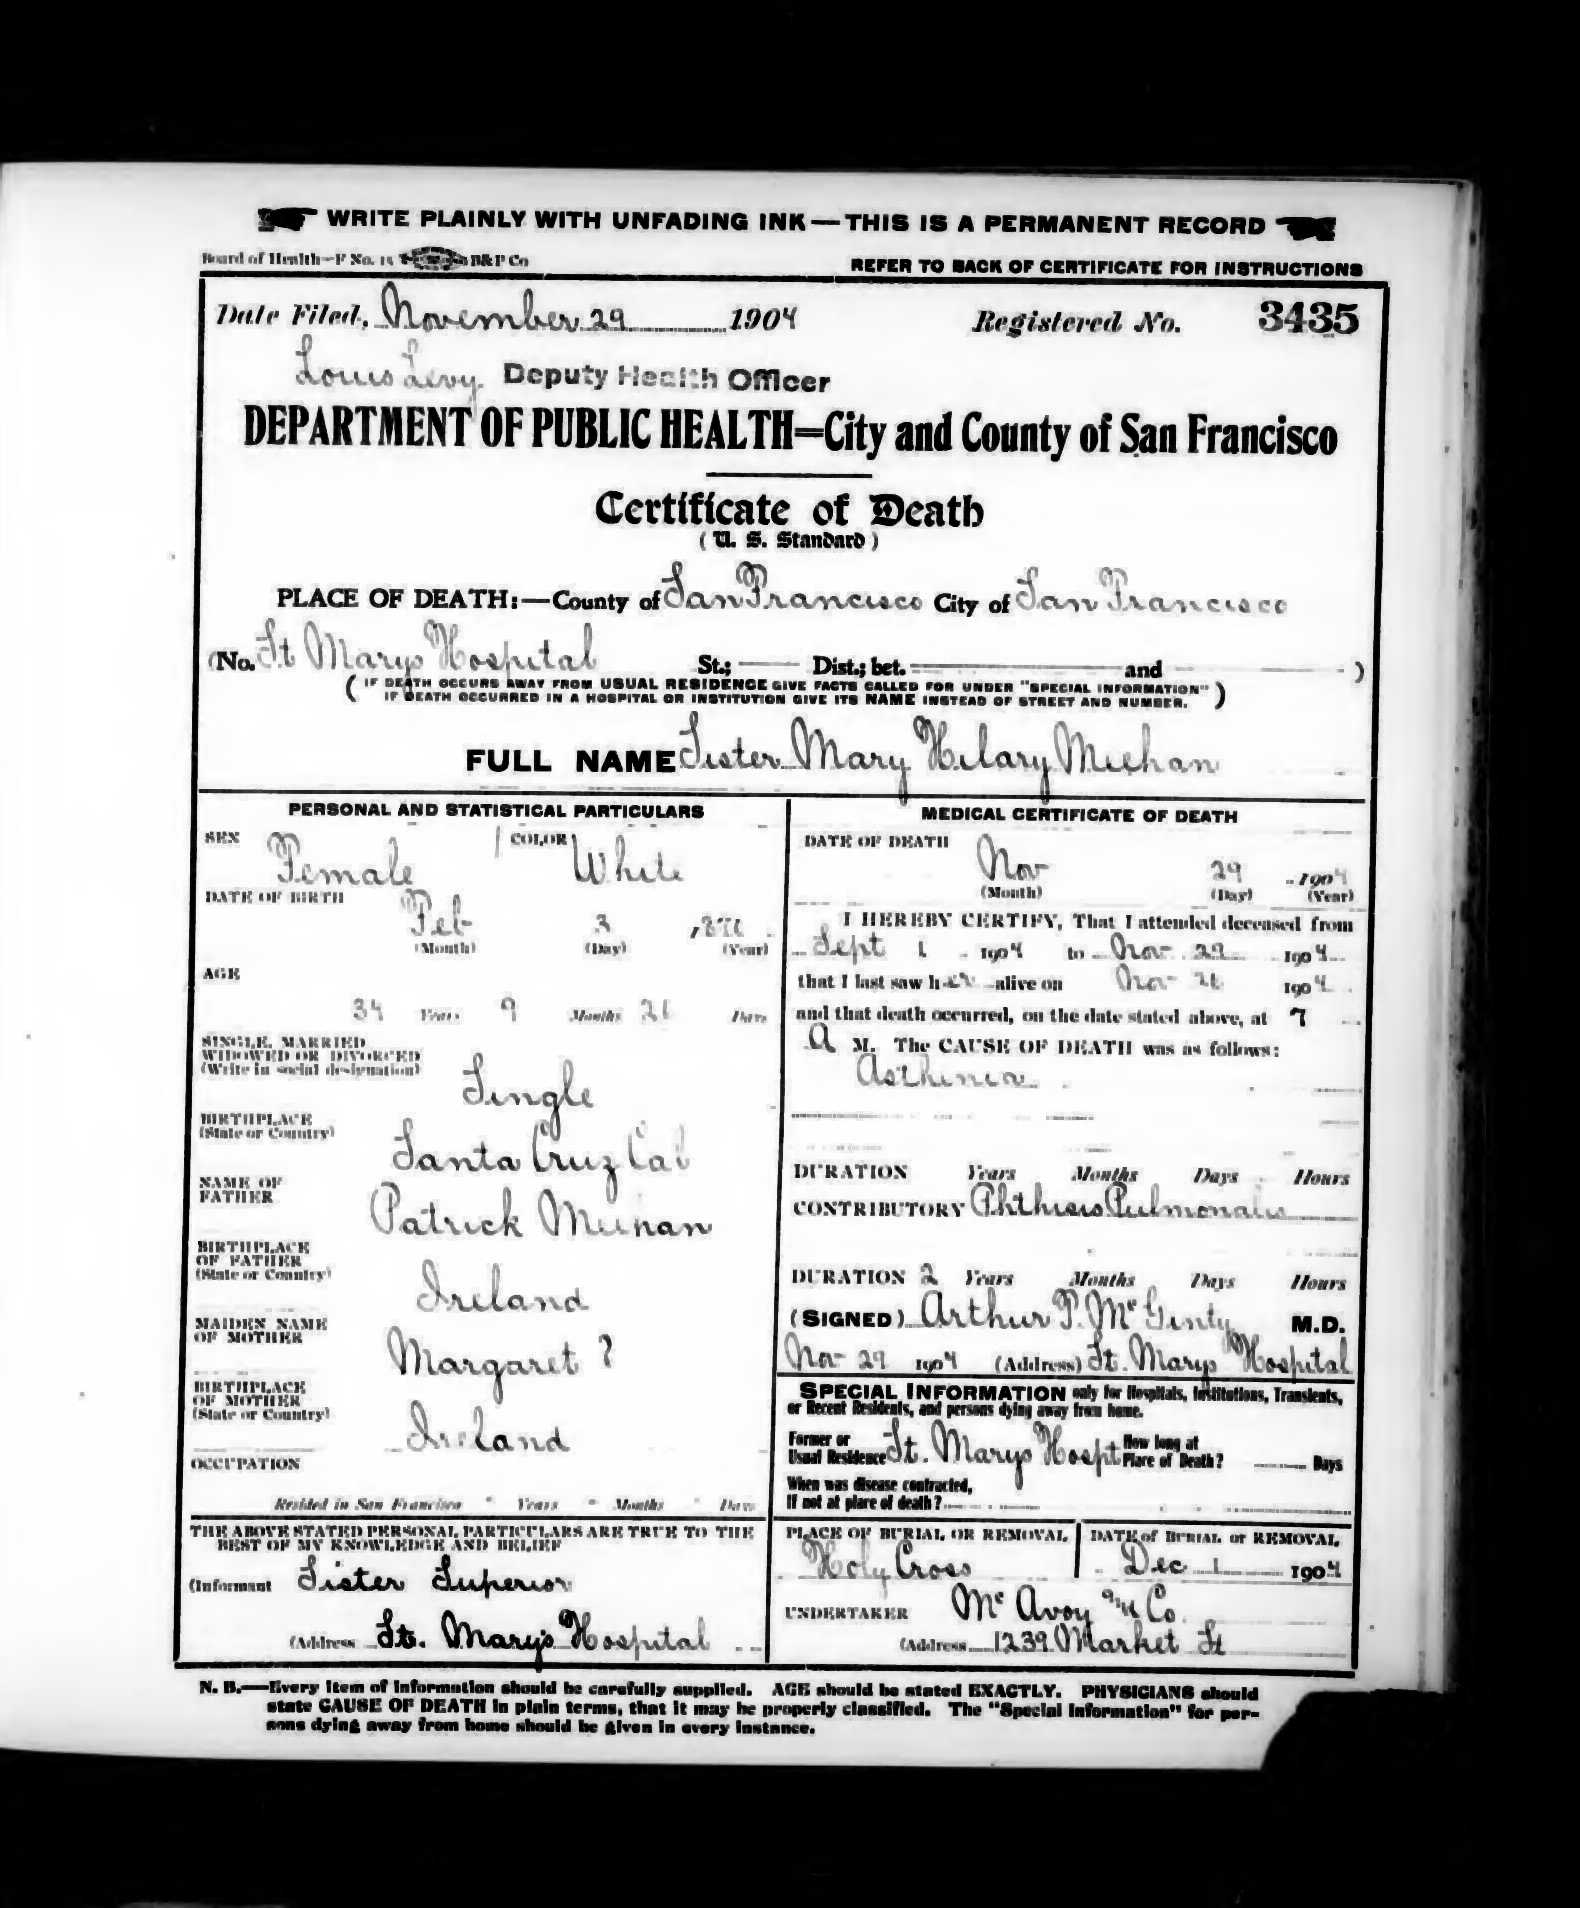 WRITE PLAINLY WITH UNFADING INK—THIS IS A PERMANENT RECORD
Board of Health—F No. 15 B&P Co
REFER TO BACK OF CERTIFICATE FOR INSTRUCTIONS
Date Filed, November 29 1904 Registered No. 3435
Louis Levy Deputy Health Officer
DEPARTMENT OF PUBLIC HEALTH=City and County of San Francisco
Certificate of Death
(U. S. Standard)
PLACE OF DEATH:—County of San Francisco City of San Francisco
(No. St Marys Hospital St.; Dist.; bet. and )
( IF DEATH OCCURS AWAY FROM USUAL RESIDENCE GIVE FACTS CALLED FOR UNDER "SPECIAL INFORMATION"
IF DEATH OCCURRED IN A HOSPITAL OR INSTITUTION GIVE ITS NAME INSTEAD OF STREET AND NUMBER. )
FULL NAME Sister Mary Hilary Meehan
PERSONAL AND STATISTICAL PARTICULARS
SEX Female COLOR White
DATE OF BIRTH Feb 3
(Month) (Day) (Year)
AGE
34 Years 9 Months 26 Days
SINGLE, MARRIED
WIDOWED OR DIVORCED
(Write in social designation) Single
BIRTHPLACE
(State or Country) Santa Cruz Cal
NAME OF
FATHER Patrick Meehan
BIRTHPLACE
OF FATHER
(State or Country) Ireland
MAIDEN NAME
OF MOTHER Margaret ?
BIRTHPLACE
OF MOTHER
(State or Country) Ireland
OCCUPATION
Resided in San Francisco Years Months Days
THE ABOVE STATED PERSONAL PARTICULARS ARE TRUE TO THE
BEST OF MY KNOWLEDGE AND BELIEF
(Informant Sister Superior
(Address St. Mary's Hospital
MEDICAL CERTIFICATE OF DEATH
DATE OF DEATH
Nov 29 1904
(Month) (Day) (Year)
I HEREBY CERTIFY, That I attended deceased from
Sept 1 1904 to Nov 29 1904
that I last saw her alive on Nov 1904
and that death occurred, on the date stated above, at 7
A M. The CAUSE OF DEATH was as follows:
Asthenia
DURATION Years Months Days Hours
CONTRIBUTORY Phthisis Pulmonalis
DURATION 2 Years Months Days Hours
(SIGNED) Arthur P. McGinty M.D.
Nov 29 1904 (Address) St. Marys Hospital
SPECIAL INFORMATION only for Hospitals, Institutions, Transients,
or Recent Residents, and persons dying away from home.
Former or
Usual Residence St. Marys Hospt How long at
Place of Death? Days
When was disease contracted,
If not at place of death?
PLACE OF BURIAL OR REMOVAL DATE of BURIAL or REMOVAL
Holy Cross Dec 1 1904
UNDERTAKER McAvoy Co.
(Address 1239 Market St
N. B.—Every item of information should be carefully supplied. AGE should be stated EXACTLY. PHYSICIANS should
state CAUSE OF DEATH in plain terms, that it may be properly classified. The "Special Information" for per-
sons dying away from home should be given in every instance.